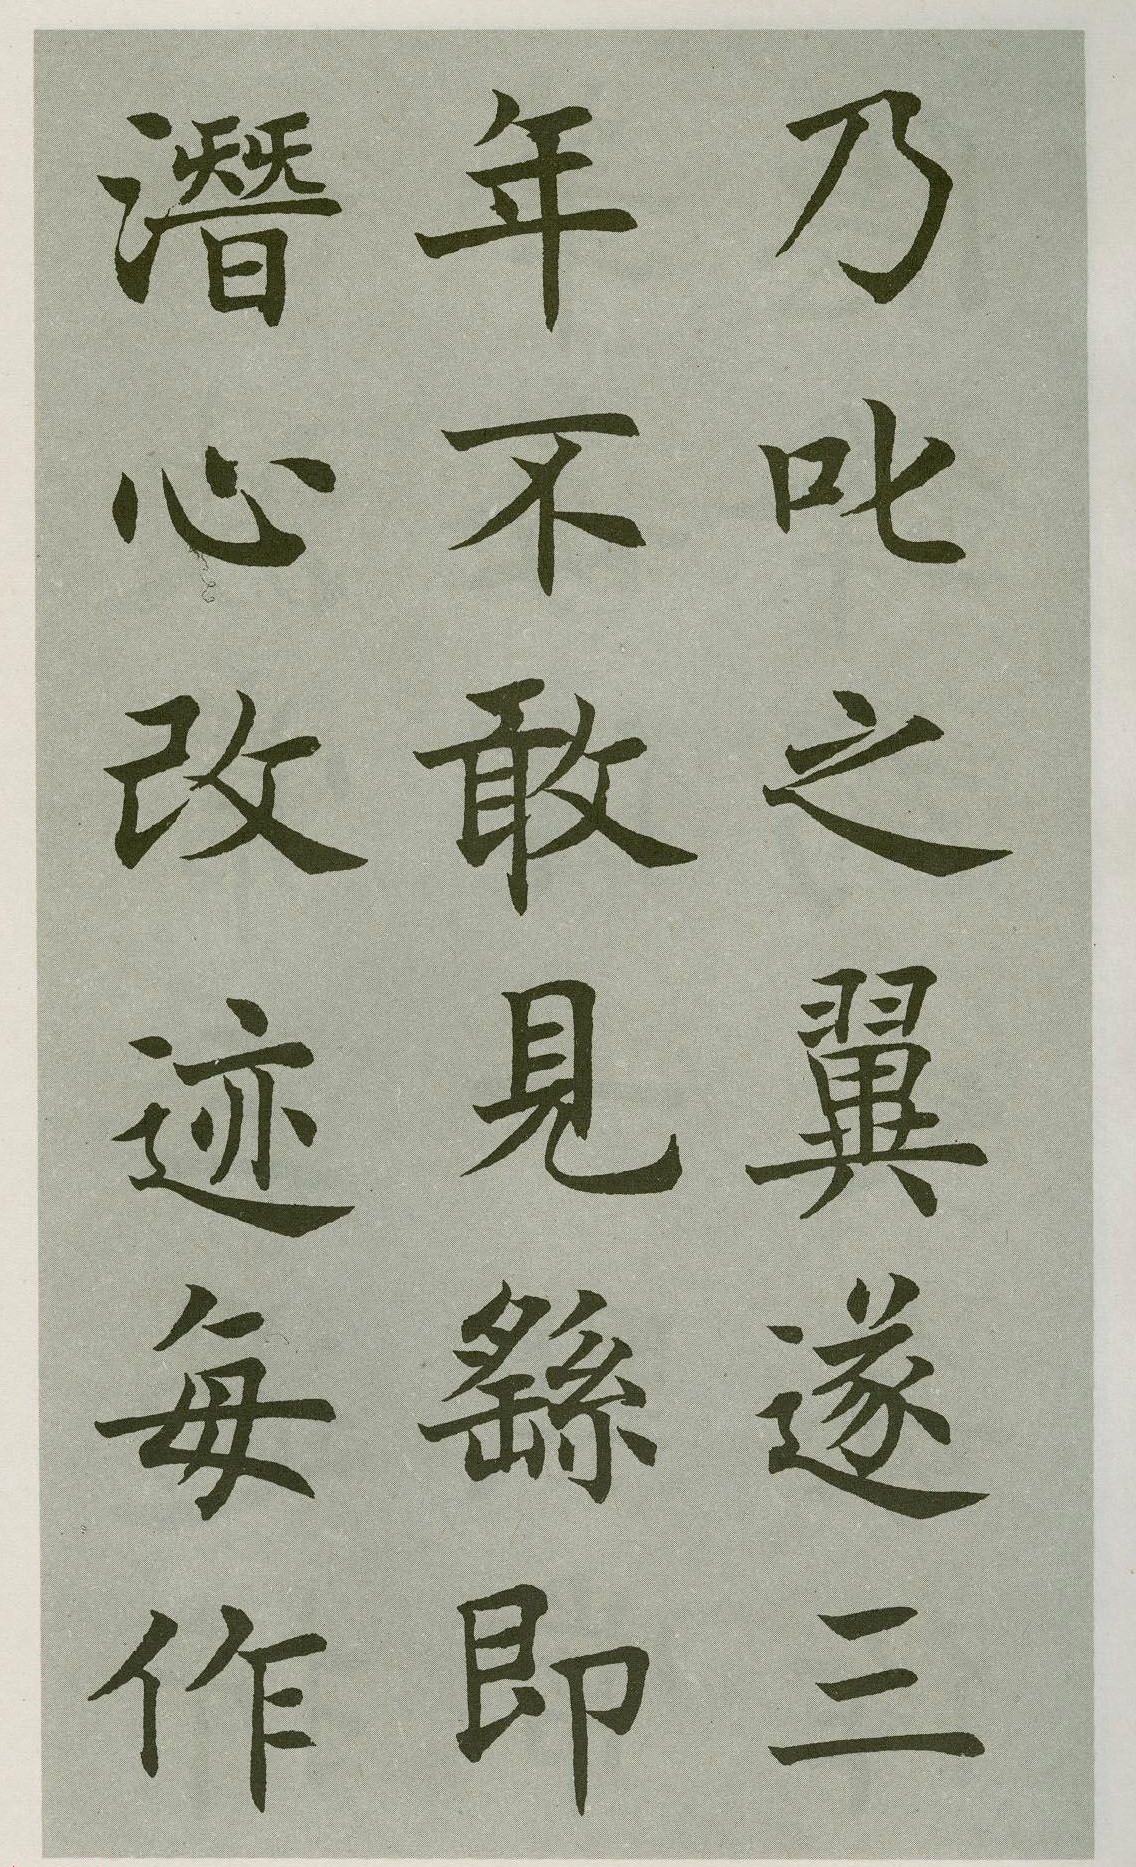 乃叱之翼遂三
年不敢見繇即
潛心改迹每作